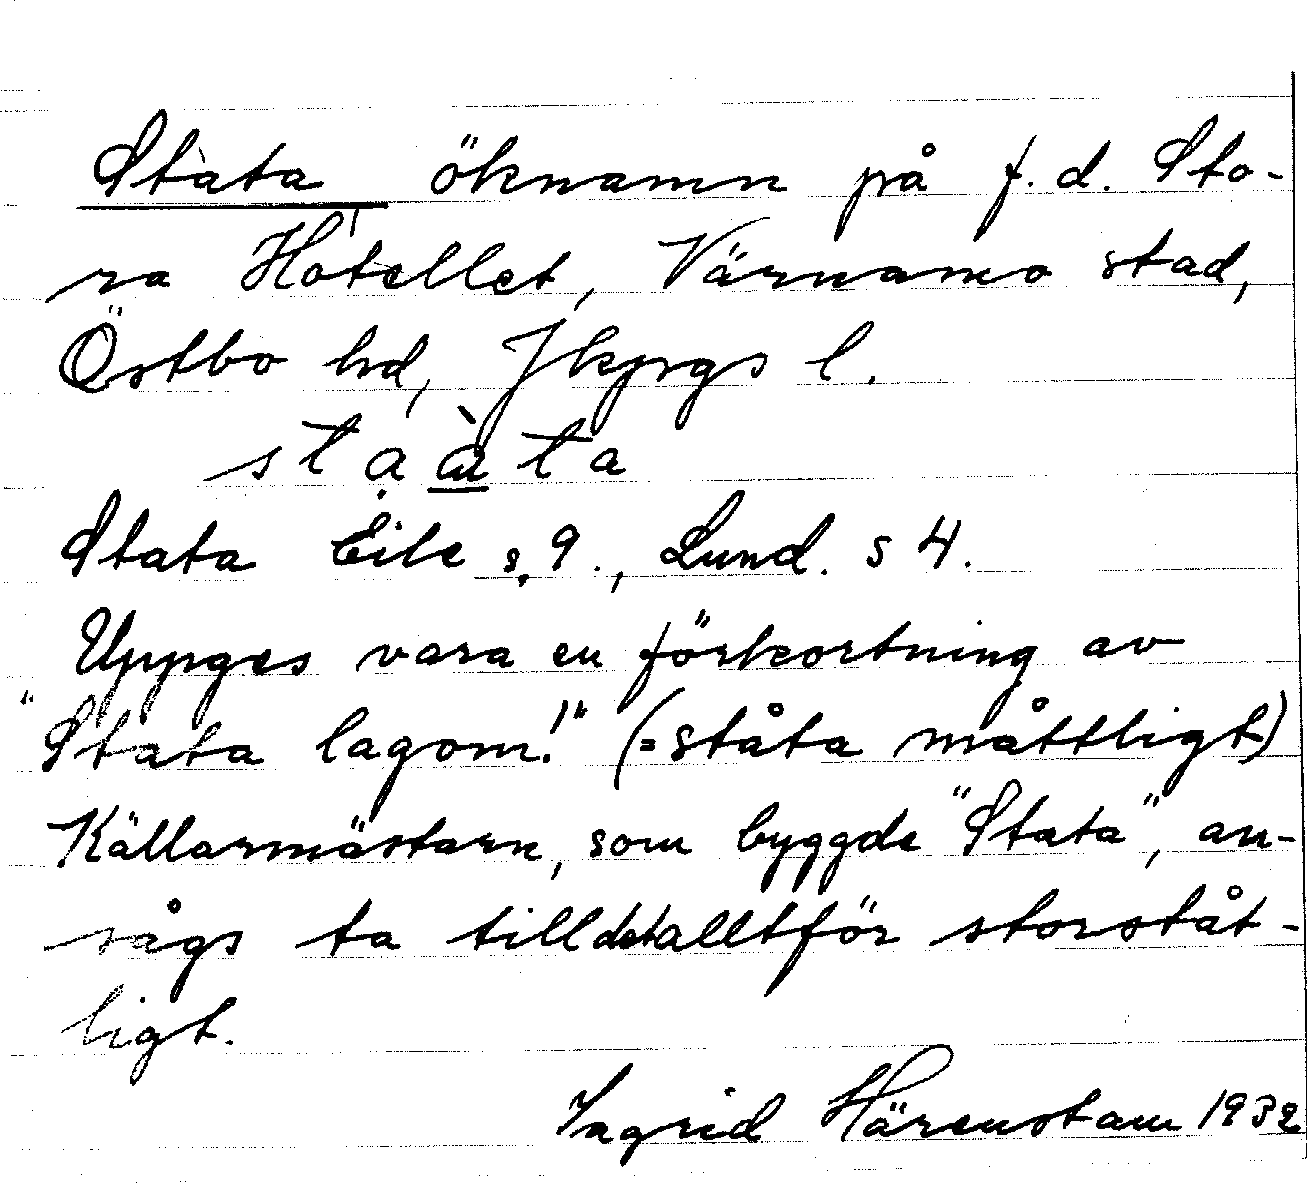 Stata öknamn på f.d. Sto-
ra Hotellet, Värnamo stad,
Östbo hd, Jkpgs l.
staàta
Stata Eile s. 9., Lund. s 4.
Uppges vara en förkortning av
"Stata lagom!" (= ståta måttligt)
Källarmästarn, som byggde "Stata", an-
sågs ta till det alltför storståt-
ligt.
Ingrid Härenstam 1932